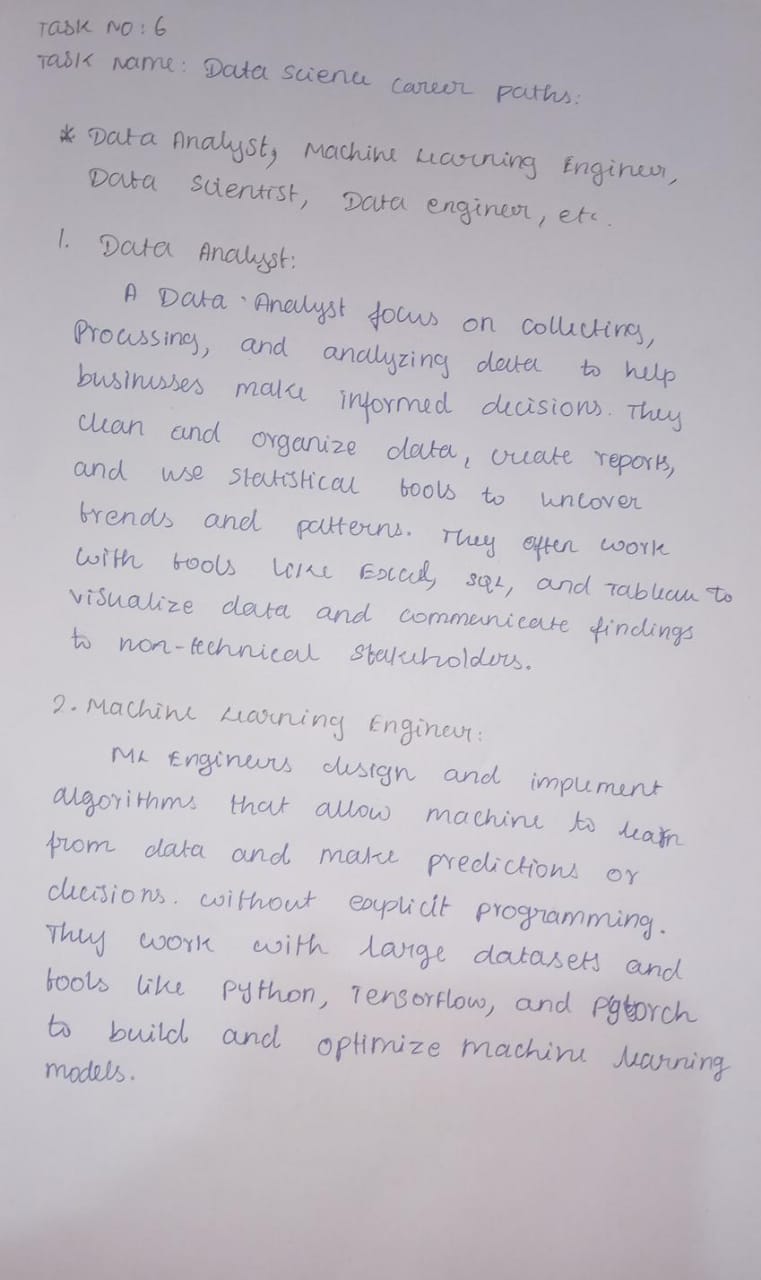 Task No: 6
Task Name: Data Science Career paths:
* Data Analyst, Machine Learning Engineer,
Data Scientist, Data engineer, etc.
1. Data Analyst:
A Data Analyst focus on collecting,
Processing, and analyzing data to help
businesses make informed decisions. They
clean and organize data, create reports,
and use statistical tools to uncover
trends and patterns. They often work
with tools like Excel, SQL, and Tableau to
visualize data and communicate findings
to non-technical stakeholders.
2. Machine Learning Engineer:
ML Engineers design and implement
algorithms that allow machine to learn
from data and make predictions or
decisions. without explicit programming.
They work with large datasets and
tools like python, Tensorflow, and Pytorch
to build and optimize machine learning
models.